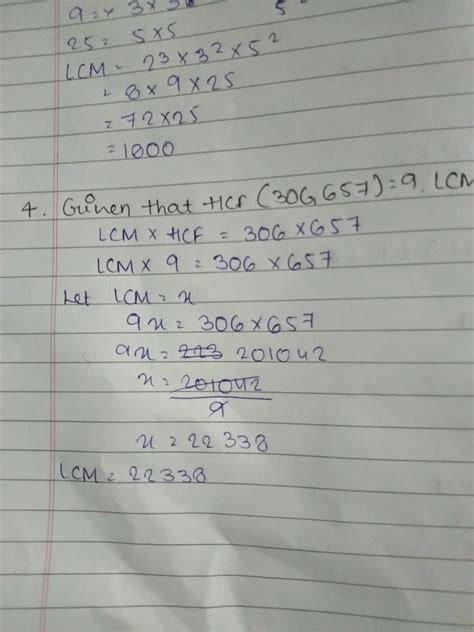 9 = 3 × 3
25 = 5×5
LCM = 2³ × 3² × 5²
= 8 × 9 × 25
= 72×25
= 1800
4. Given that HCF (306, 657) = 9. LCM
LCM × HCF = 306 × 657
LCM × 9 = 306 × 657
Let LCM = x
9x = 306×657
9x = 223 201042
x = 201042
9
x = 22 338
LCM = 22338